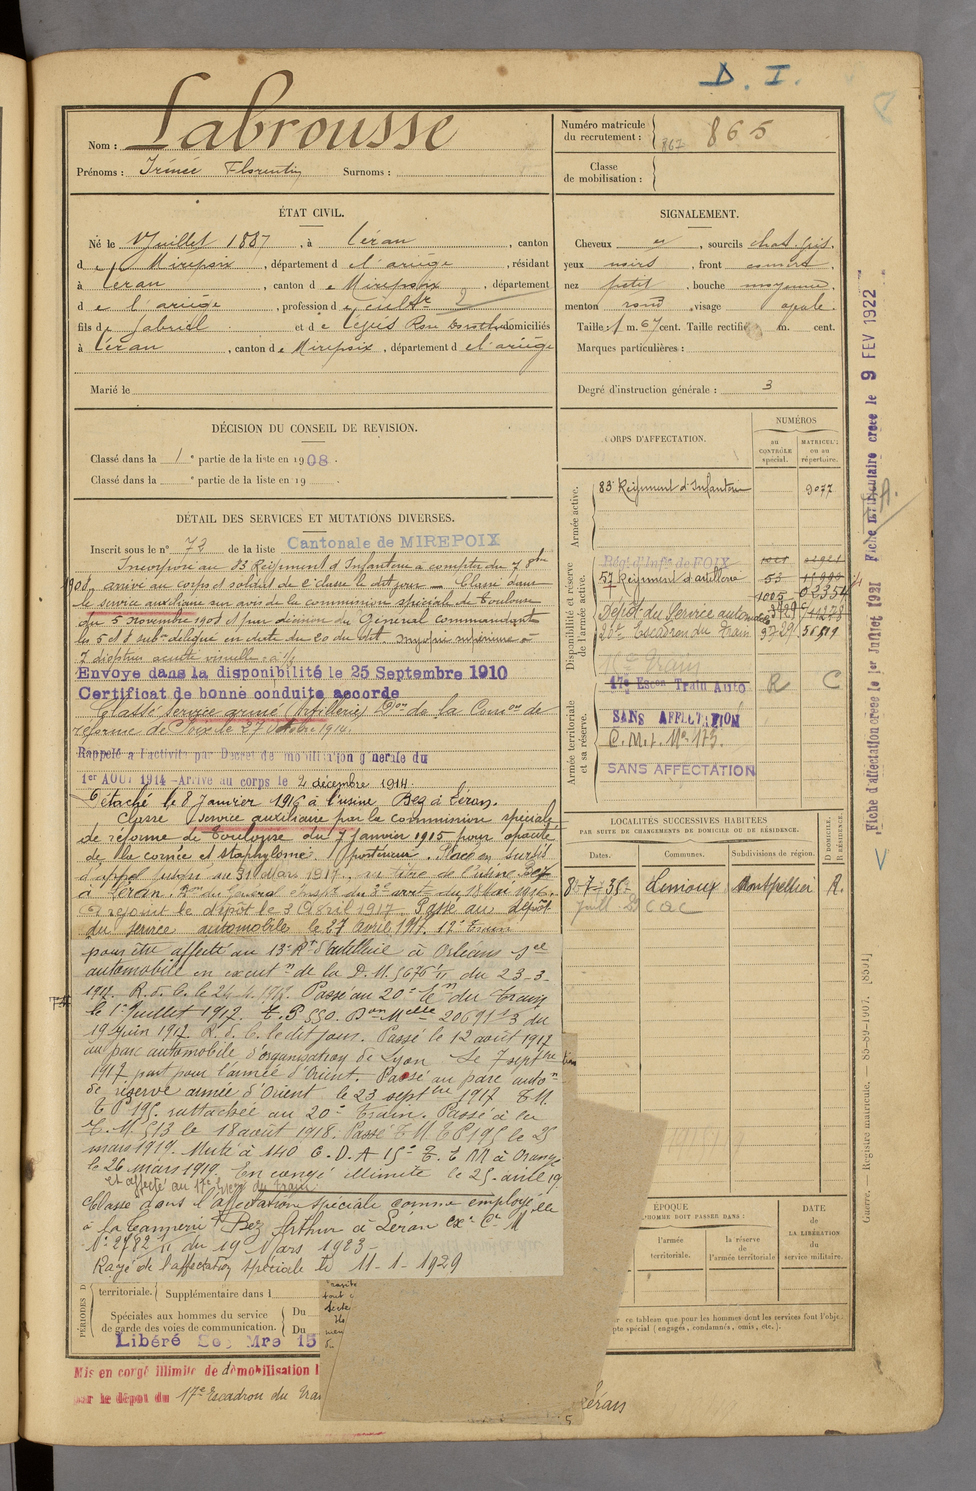 D. I.
Nom : Labrousse
Prénoms : Irénée Florentin Surnoms :
Numéro matricule
du recrutement : 867 865
Classe
de mobilisation :
ÉTAT CIVIL.
Né le Juillet 1887, à Léran, canton
de Mirepoix, département de l'ariège, résidant
à Léran, canton de Mirepoix, département
de l'ariège, profession de cultr 2
fils de Gabriel et de domiciliés
à Léran, canton de Mirepoix, département de l'ariège
Marié le
SIGNALEMENT.
Cheveux et, sourcils chat. gris,
yeux noirs, front couvert,
nez petit, bouche moyenne,
menton rond, visage ovale.
Taille : 1 m. 67 cent. Taille rectifiée m. cent.
Marques particulières :
Degré d'instruction générale : 3
DÉCISION DU CONSEIL DE REVISION.
Classé dans la 1e partie de la liste en 1908.
Classé dans la e partie de la liste en 19 .
DÉTAIL DES SERVICES ET MUTATIONS DIVERSES.
Inscrit sous le n° 73 de la liste Cantonale de MIREPOIX
Incorporé au 83 Régiment d'Infanterie à compter du 7 8bre
1908, arrivé au corps et soldat de 2e classe le dit jour — Classé dans
le service auxiliaire sur avis de la commission spéciale de Toulouse
du 5 novembre 1908 et par décision du Général commandant
les 5 et 8 subon délégué en date du 20 du dit. myopie supérieure à
7 dioptries acuité visuelle
Envoyé dans la disponibilité le 25 Septembre 1910
Certificat de bonne conduite accordé
Classé service armé (Artillerie) Don de la Comon de
réforme de Foix le 27 Octobre 1914.
Rappelé à l'activité par Décret de mobilisation générale du
1er AOUT 1914 - Arrivé au corps le 2 décembre 1914
Détaché le 8 Janvier 1916 à l'usine Bez à Léran.
Classé service auxiliaire par la commission spéciale
de réforme de Toulouse du 7 Janvier 1915 pour opacité
de la cornée et staphylome postérieur. Placé en sursis
d'appel jusqu'au 31 Mars 1917, au titre de l'usine Bez
à Léran.
rejoint le dépôt le 3 Avril 1917. Passé au dépôt
du service automobile le 27 avril 1917. 17e Train
pour être affecté au 13e Rt d'artillerie à Orléans
automobile en exécutn de la D. M. 5676 du 23-3-
1917. R. d. C. le 24 4 1917. Passé au 20e Em du Train
le 1er Juillet 1917. T. P 550. Don Melle 20691 3 du
19 juin 1917. R. d. C. le dit jour. Passé le 12 août 1917
au parc automobile d'organisation de Lyon. Le 7 septbre
1917 part pour l'armée d'Orient. Passé au parc auto
de réserve armée d'Orient le 23 septbre 1917 T M
T P 195 rattachée au 20e Train. Passé à la
T. M. 513 le 18 août 1918. Passé T M T P 195 le 25
mars 1919. Muté à 140 C. D. A 15e E. T M à Orange
le 26 mars 1919. En congé illimité le 25 avril 19
et affecté au 17e Escon du Train.
Classé dans l'affectation spéciale comme employé
à la Tannerie Bez Arthur à Léran
N° 2782 11 du 19 Mars 1923-
Rayé de l'affectation spéciale le 11-1-1929
territoriale. Supplémentaire dans l
Spéciales aux hommes du service
de garde des voies de communication.
Du
Du
Libéré
Mis en congé illimité de démobilisation
par le dépôt du 17e Escadron du Train
Léran
CORPS D'AFFECTATION.
NUMÉROS
au CONTRÔLE spécial.
MATRICULE ou au répertoire.
Armée active.
83e Régiment d'Infanterie 9077
Disponibilité et réserve de l'armée active.
Régt d'Infie de FOIX
57 Régiment d'artillerie 53
1005 02354
Dépôt du Service automobile
20e Escadron du Train
17e Train
17e Escon Train Auto R C
Armée territoriale et sa réserve.
SANS AFFECTATION
C. M. I. No 173.
SANS AFFECTATION
LOCALITÉS SUCCESSIVES HABITÉES
PAR SUITE DE CHANGEMENTS DE DOMICILE OU DE RÉSIDENCE.
Dates. Communes. Subdivisions de région. D DOMICILE. R RÉSIDENCE.
8-7-35 Limoux Montpellier R.
ÉPOQUE
L'HOMME DOIT PASSER DANS :
l'armée territoriale.
la réserve de l'armée territoriale
DATE de LA LIBÉRATION du service militaire.
ce tableau que pour les hommes dont les services font l'obje
pte spécial (engagés, condamnés, omis, etc.).
Fiche d'affectation créée le 1er Juillet 1921 Fiche matriculaire créée le 9 FEV 1922
Guerre. — Registre matricule. — 85-89-1907. [8571]